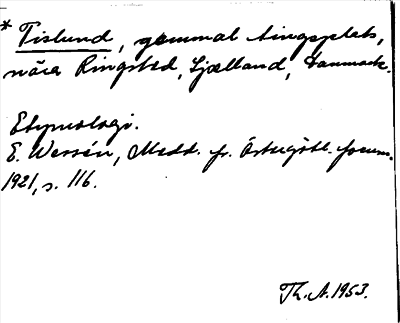 * Tislund, gammal tingsplats,
nära Ringsted, Sjælland, Danmark.
Etymologi.
E. Wessén, Medd. fr. Östergötl. fornm.
1921, s. 116.
Th. A. 1953.